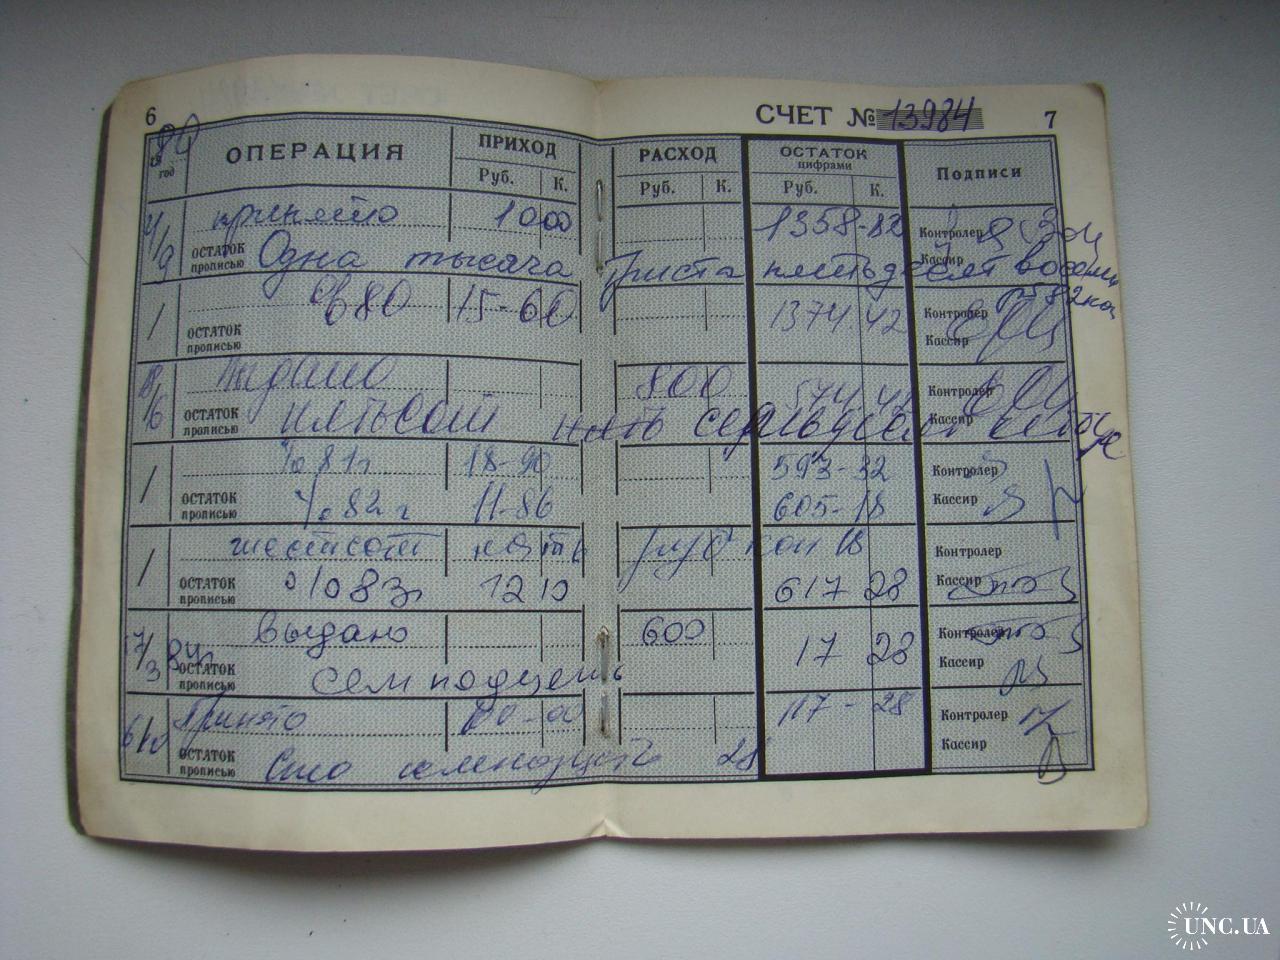 6
СЧЕТ № 13984 7
19 80 год
ОПЕРАЦИЯ
ПРИХОД
РАСХОД
ОСТАТОК
цифрами
Подписи
Руб. К. Руб. К. Руб. К.
принято 1000 1358-82 Контролер
/9 ОСТАТОК прописью Одна тысача триста пятьдесят восемь Кассир
82 коп
/ 80 15-60 1374.42 Контролер
ОСТАТОК прописью Кассир
18/6 Выдано 800 574.42 Контролер
ОСТАТОК прописью пятьсот семьдесят четыре Кассир
/ % 81г 18-90 593-32 Контролер
ОСТАТОК прописью % 82г 11-86 605-18 Кассир
/ шестсот пять руб коп 18 Контролер
ОСТАТОК прописью % 83г 12 10 617 28 Кассир
17/3 84г выдано 600 17 28 Контролер
ОСТАТОК прописью семнодцеть Кассир
6/10 Принято 100-00 117-28 Контролер
ОСТАТОК прописью Сто семнодцать 28 Кассир
UNC.UA